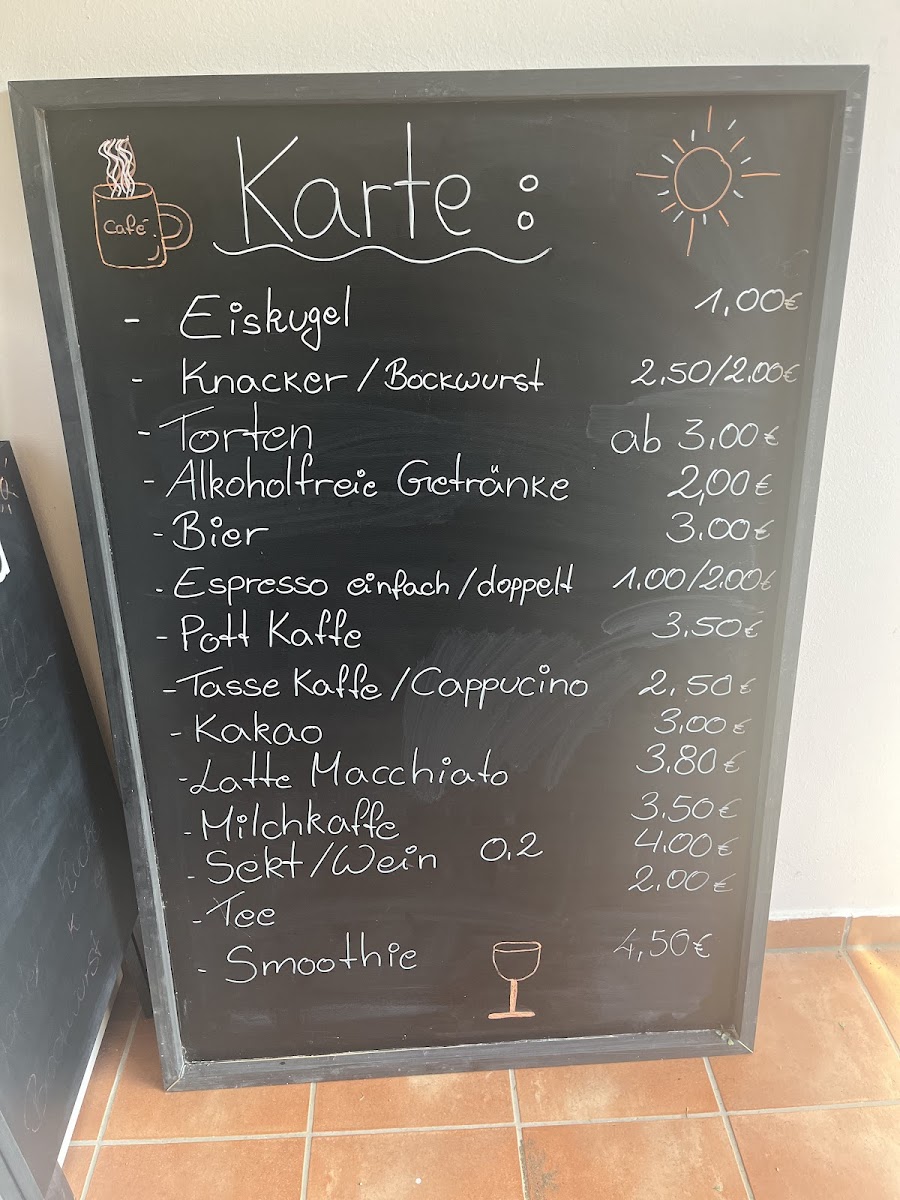 Café
Karte :
- Eiskugel 1,00€
- Knacker / Bockwurst 2,50/2,00€
- Torten ab 3,00€
- Alkoholfreie Getränke 2,00€
- Bier 3,00€
- Espresso einfach / doppelt 1,00/2,00€
- Pott Kaffe 3,50€
- Tasse Kaffe / Cappucino 2,50€
- Kakao 3,00€
- Latte Macchiato 3,80€
- Milchkaffe 3,50€
- Sekt / Wein 0,2 4,00€
- Tee 2,00€
- Smoothie 4,50€